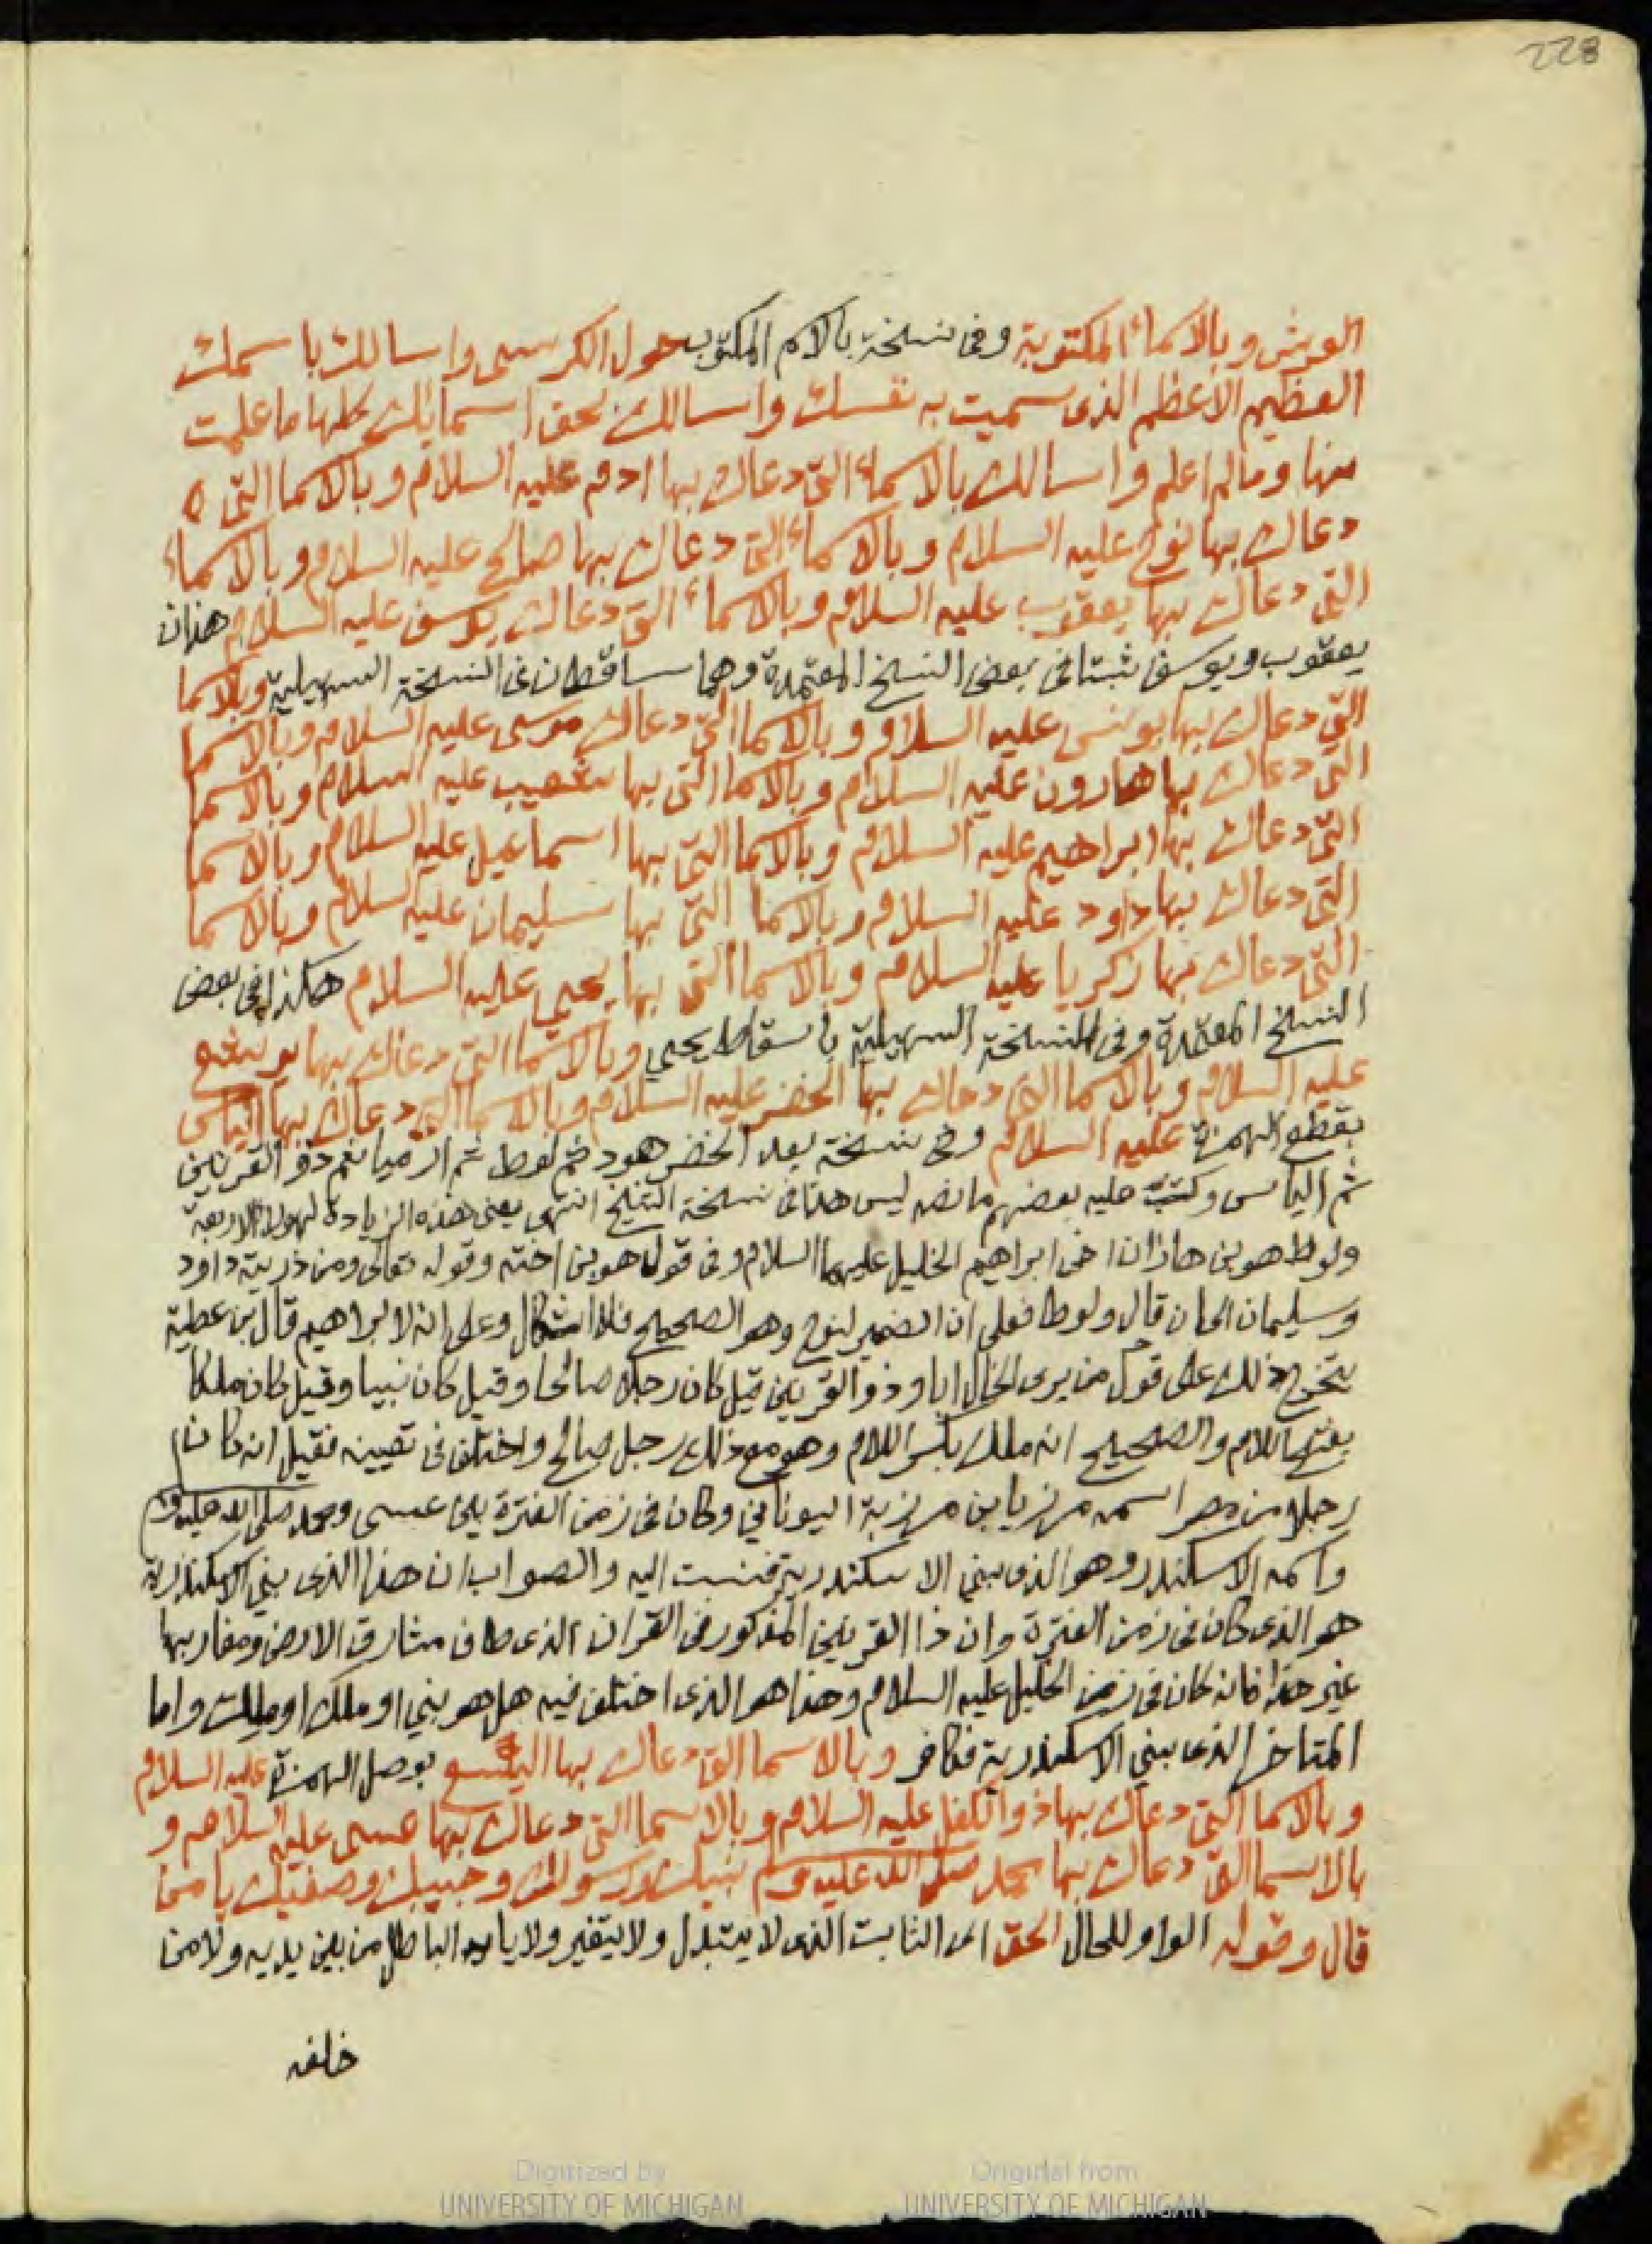 228
العرش وبالاسماء المكتوبة وفى نسخة بالاسم المكتوب حول الكرسى واسالك باسمك
العظيم الاعظم الذى سميت به نفسك واسالك بحق اسمايك كلها ما علمت
منها ومالم اعلم واسالك بالاسماء التى دعاك بها ادم عليه السلام وبالاسما التى ه
دعاك بها نوح عليه السلام وبالاسماء التى دعاك بها صالح عليه السلام وبالاسماء
التى دعاك بها يعقوب عليه السلام وبالاسماء التى دعاك يوسف عليه السلام هذان
يعقوب ويوسف ثبتا فى بعض النسخ المعتمدة وهما ساقطان فى النسخة السهيلية وبالاسما
التى دعاك بها يونس عليه السلام وبالاسما التى دعاك موسى عليه السلام وبالاسما
التى دعاك بها هارون عليه السلام وبالاسما التى بها شعيب عليه السلام وبالاسما
التى دعاك بها ابراهيم عليه السلام وبالاسما التى بها اسماعيل عليه السلام وبالاسما
التى دعاك بها داود عليه السلام وبالاسما التى بها سليمان عليه السلام وبالاسما
التى دعاك بها زكريا عليه السلام وبالاسما التى بها يحيى عليه السلام هكذا فى بعض
النسخ المعتمدة وفى النسخة السهيلية باسقاط يحيى وبالاسما التى دعاك بها يوشع
عليه السلام وبالاسما التى دعاك بها الخضر عليه السلام وبالاسما التى دعاك بها الياس
بقطع الهمزة عليه السلام وفى نسخة بعد الخضر هود ثم لوط ثم ارميا ثم ذو القرنين
ثم الياس وكتب عليه بعضهم ما نصه ليس هذا فى نسخة الشيخ انتهى يعنى هذه الزيادة لهولا الاربعة
ولوط هو بن هاران اخى ابراهيم الخليل عليهما السلام وفى قوله هو بن اخته وقوله تعالى ومن ذريته داود
وسليمان الى ان قال ولوطا فعلى ان الضمير لنوح وهو الصحيح فلا اشكال وعلى انه لابراهيم قال بن عطية
يتخرج ذلك على قول من يرى الخال ابا وذو القرنين قيل كان رجلا صالحا وقيل كان نبيا وقيل كان ملكا
بفتح اللام والصحيح انه ملك بكسر اللام وهو مع ذلك رجل صالح واختلف فى تعيينه فقيل انه كان
رجلا من مصر اسمه مرزبا بن مرزبة اليونانى وكان فى زمن الفترة بين عيسى ومحمد صلى الله عليه وسلم
واسمه الاسكندر وهو الذى بنى الاسكندرية فنسبت اليه والصواب ان هذا الذى بنى الاسكندرية
هو الذى كان فى زمن الفترة وان ذا القرنين المذكور فى القران الذى طاف مشارق الارض ومغاربها
غير هذا فانه كان فى زمن الخليل عليه السلام وهذا هو الذى اختلف فيه هل هو نبى او ملك او ملك واما
المتاخر الذى بنى الاسكندرية فكافر وبالاسما التى دعاك بها اليسع بوصل الهمزة عليه السلام
وبالاسما التى دعاك بها ذو الكفل عليه السلام وبالاسما التى دعاك بها عيسى عليه السلام و
بالاسما التى دعاك بها محمد صلى الله عليه وسلم نبيك ورسولك وحبيبك وصفيك يا من
قال وقوله الواو للحال الحق اى الثابت الذى لا يتبدل ولا يتغير ولا ياتيه الباطل من بين يديه ولا من
خلفه
Digitized by
UNIVERSITY OF MICHIGAN
Original from
UNIVERSITY OF MICHIGAN